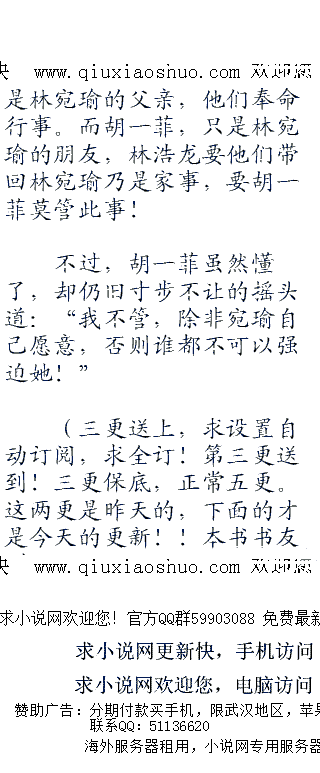 www.qiuxiaoshuo.com 欢迎您
是林宛瑜的父亲，他们奉命
行事。而胡一菲，只是林宛
瑜的朋友，林浩龙要他们带
回林宛瑜乃是家事，要胡一
菲莫管此事！
不过，胡一菲虽然懂
了，却仍旧寸步不让的摇头
道：“我不管，除非宛瑜自
己愿意，否则谁都不可以强
迫她！”
（三更送上，求设置自
动订阅，求全订！第三更送
到！三更保底，正常五更。
这两更是昨天的，下面的才
是今天的更新！！本书书友
www.qiuxiaoshuo.com 欢迎您
求小说网欢迎您！官方QQ群59903088 免费最新
求小说网更新快，手机访问
求小说网欢迎您，电脑访问
赞助广告：分期付款买手机，限武汉地区，苹果
联系QQ：51136620
海外服务器租用，小说网专用服务器